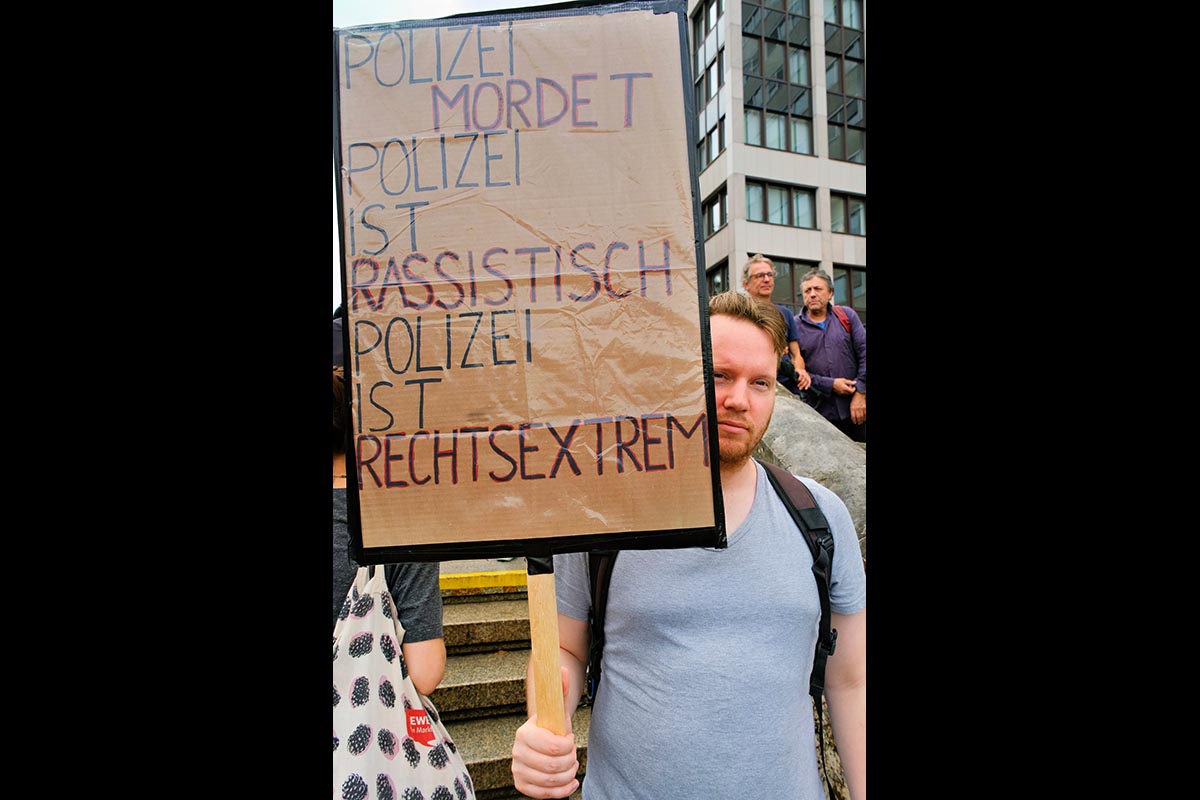 POLIZEI
MORDET
POLIZEI
IST
RASSISTISCH
POLIZEI
IST
RECHTSEXTREM